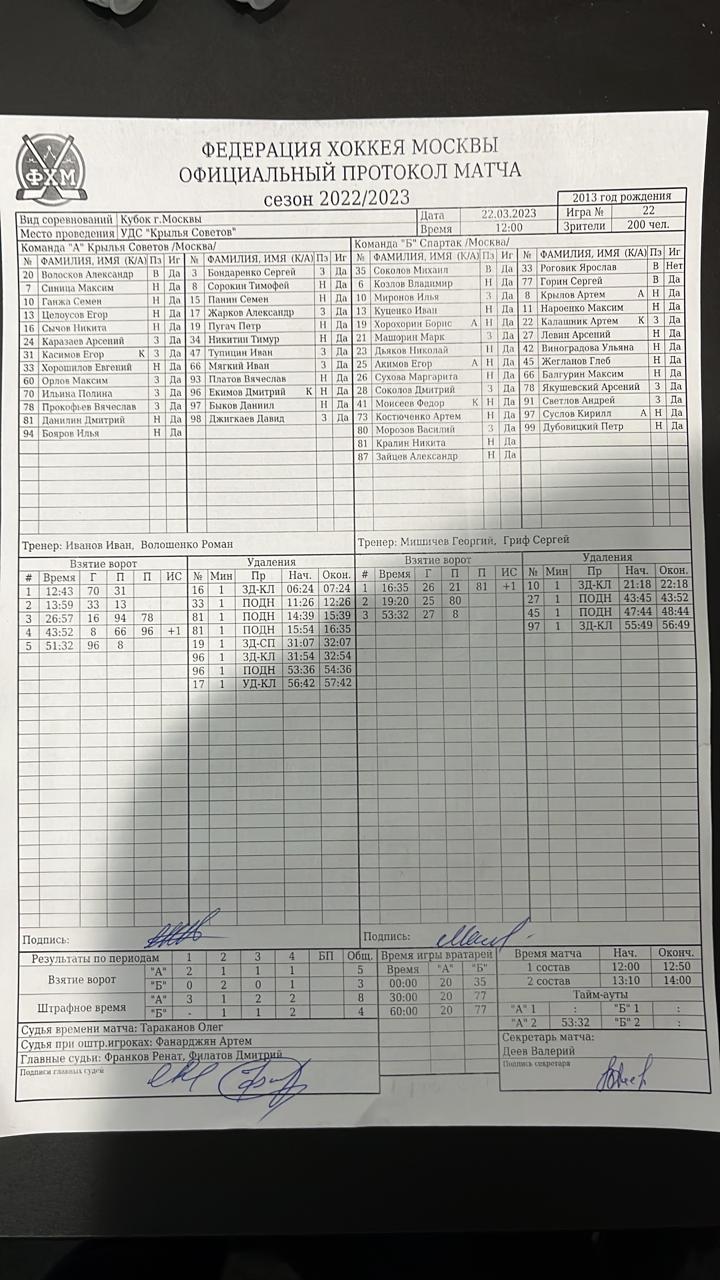 ФХМ
ФЕДЕРАЦИЯ ХОККЕЯ МОСКВЫ
ОФИЦИАЛЬНЫЙ ПРОТОКОЛ МАТЧА
сезон 2022/2023
2013 год рождения
Вид соревнований Кубок г.Москвы Дата 22.03.2023 Игра № 22
Место проведения УДС "Крылья Советов" Время 12:00 Зрители 200 чел.
Команда "А" Крылья Советов /Москва/
№ ФАМИЛИЯ, ИМЯ (К/А) Пз Иг № ФАМИЛИЯ, ИМЯ (К/А) Пз Иг
20 Волосков Александр В Да 3 Бондаренко Сергей З Да
7 Синица Максим Н Да 8 Сорокин Тимофей Н Да
10 Ганжа Семен Н Да 15 Панин Семен Н Да
13 Целоусов Егор Н Да 17 Жарков Александр З Да
16 Сычов Никита Н Да 19 Пугач Петр Н Да
24 Каразаев Арсений З Да 34 Никитин Тимур Н Да
31 Касимов Егор К З Да 47 Тупицин Иван З Да
33 Хорошилов Евгений Н Да 66 Мягкий Иван З Да
60 Орлов Максим З Да 93 Платов Вячеслав Н Да
70 Ильина Полина З Да 96 Екимов Дмитрий К Н Да
78 Прокофьев Вячеслав З Да 97 Быков Даниил Н Да
81 Данилин Дмитрий Н Да 98 Джигкаев Давид З Да
94 Бояров Илья Н Да
Команда "Б" Спартак /Москва/
№ ФАМИЛИЯ, ИМЯ (К/А) Пз Иг № ФАМИЛИЯ, ИМЯ (К/А) Пз Иг
35 Соколов Михаил В Да 33 Роговик Ярослав В Нет
6 Козлов Владимир Н Да 77 Горин Сергей В Да
10 Миронов Илья З Да 8 Крылов Артем А Н Да
13 Куценко Иван Н Да 11 Нароенко Максим Н Да
19 Хорохорин Борис А Н Да 22 Калашник Артем К З Да
21 Машорин Марк З Да 27 Левин Арсений Н Да
23 Дьяков Николай Н Да 42 Виноградова Ульяна Н Да
25 Акимов Егор А Н Да 45 Жегланов Глеб Н Да
26 Сухова Маргарита Н Да 66 Балгурин Максим Н Да
28 Соколов Дмитрий З Да 78 Якушевский Арсений З Да
41 Моисеев Федор К Н Да 91 Светлов Андрей З Да
73 Костюченко Артем Н Да 97 Суслов Кирилл А Н Да
80 Морозов Василий З Да 99 Дубовицкий Петр Н Да
81 Кралин Никита Н Да
87 Зайцев Александр Н Да
Тренер: Иванов Иван, Волошенко Роман
Тренер: Мишичев Георгий, Гриф Сергей
Взятие ворот Удаления
# Время Г П П ИС № Мин Пр Нач. Окон.
1 12:43 70 31 16 1 ЗД-КЛ 06:24 07:24
2 13:59 33 13 33 1 ПОДН 11:26 12:26
3 26:57 16 94 78 81 1 ПОДН 14:39 15:39
4 43:52 8 66 96 +1 81 1 ПОДН 15:54 16:35
5 51:32 96 8 19 1 ЗД-СП 31:07 32:07
96 1 ЗД-КЛ 31:54 32:54
96 1 ПОДН 53:36 54:36
17 1 УД-КЛ 56:42 57:42
Взятие ворот Удаления
# Время Г П П ИС № Мин Пр Нач. Окон.
1 16:35 26 21 81 +1 10 1 ЗД-КЛ 21:18 22:18
2 19:20 25 80 27 1 ПОДН 43:45 43:52
3 53:32 27 8 45 1 ПОДН 47:44 48:44
97 1 ЗД-КЛ 55:49 56:49
Подпись:
Подпись:
Результаты по периодам 1 2 3 4 БП Общ.
Взятие ворот "А" 2 1 1 1 5
"Б" 0 2 0 1 3
Штрафное время "А" 3 1 2 2 8
"Б" - 1 1 2 4
Время игры вратарей
Время "А" "Б"
00:00 20 35
30:00 20 77
60:00 20 77
Время матча Нач. Оконч.
1 состав 12:00 12:50
2 состав 13:10 14:00
Тайм-ауты
"А" 1 : "Б" 1 :
"А" 2 53:32 "Б" 2 :
Судья времени матча: Тараканов Олег
Судья при оштр.игроках: Фанарджян Артем
Главные судьи: Франков Ренат, Филатов Дмитрий
Подписи главных судей
Секретарь матча:
Деев Валерий
Подпись секретаря